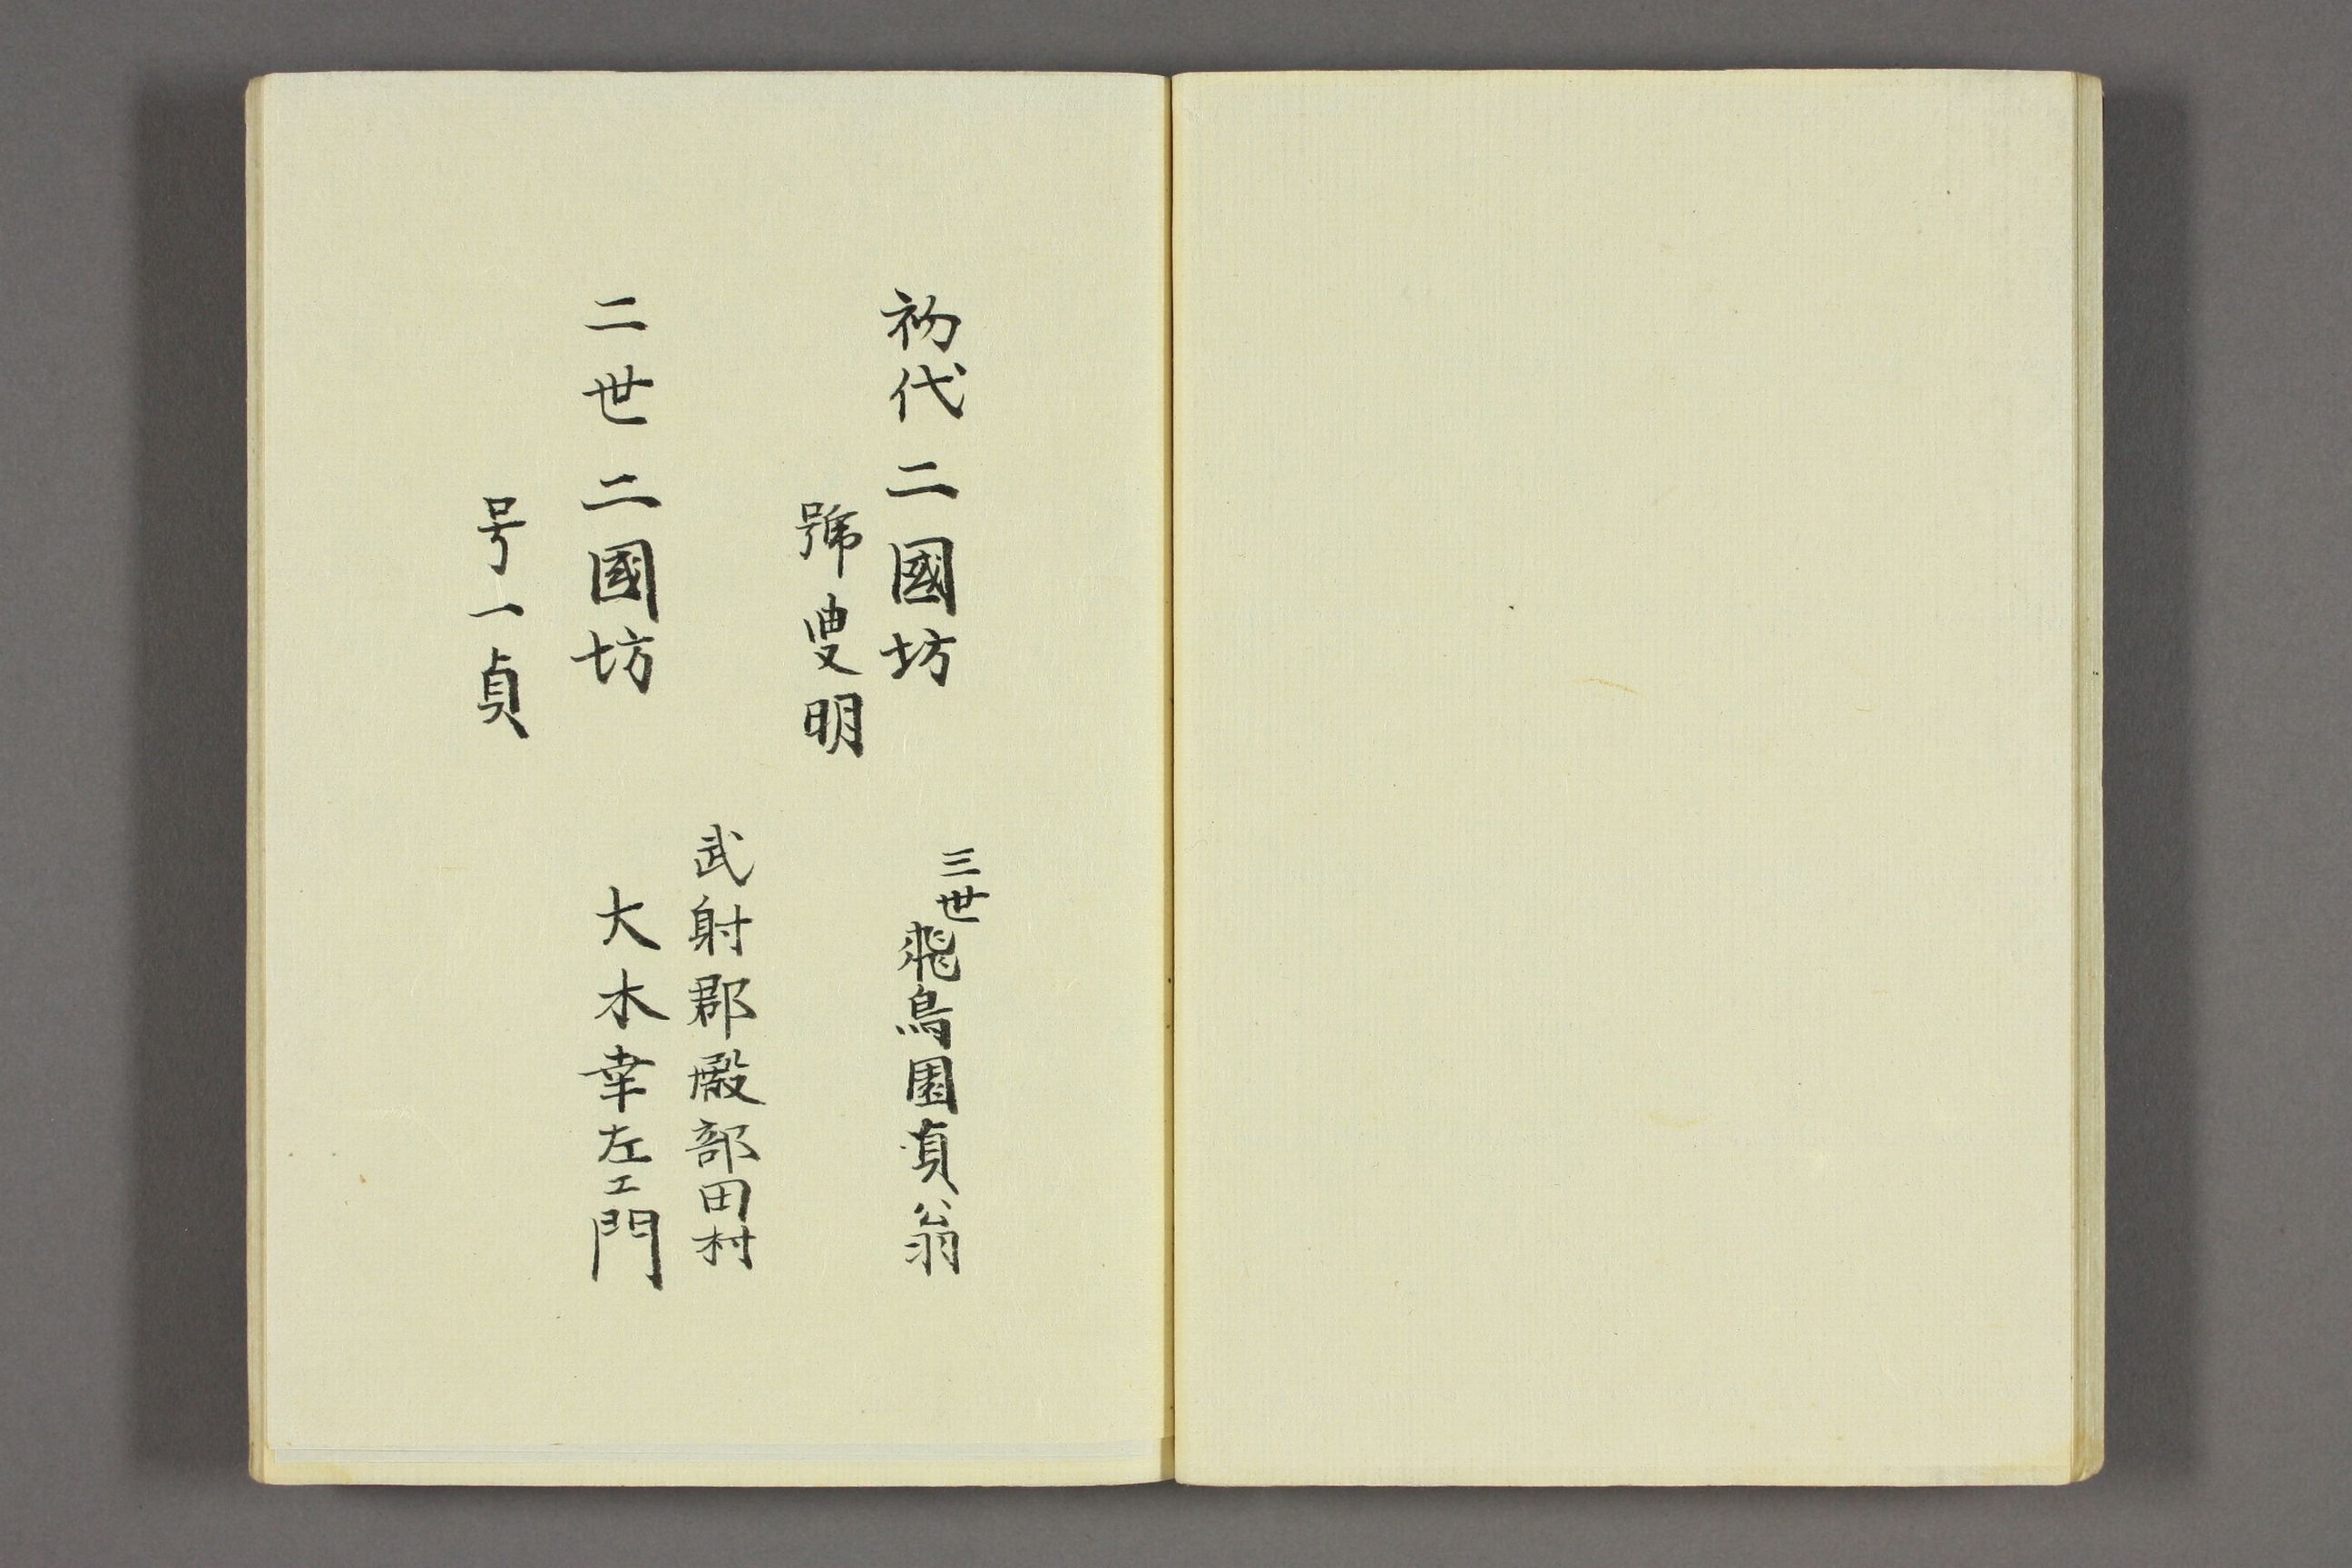 初代 二國坊
三世飛鳥園貞翁
號叟明
武射郡殿部田村
二世 二國坊
大木幸左エ門
号一貞